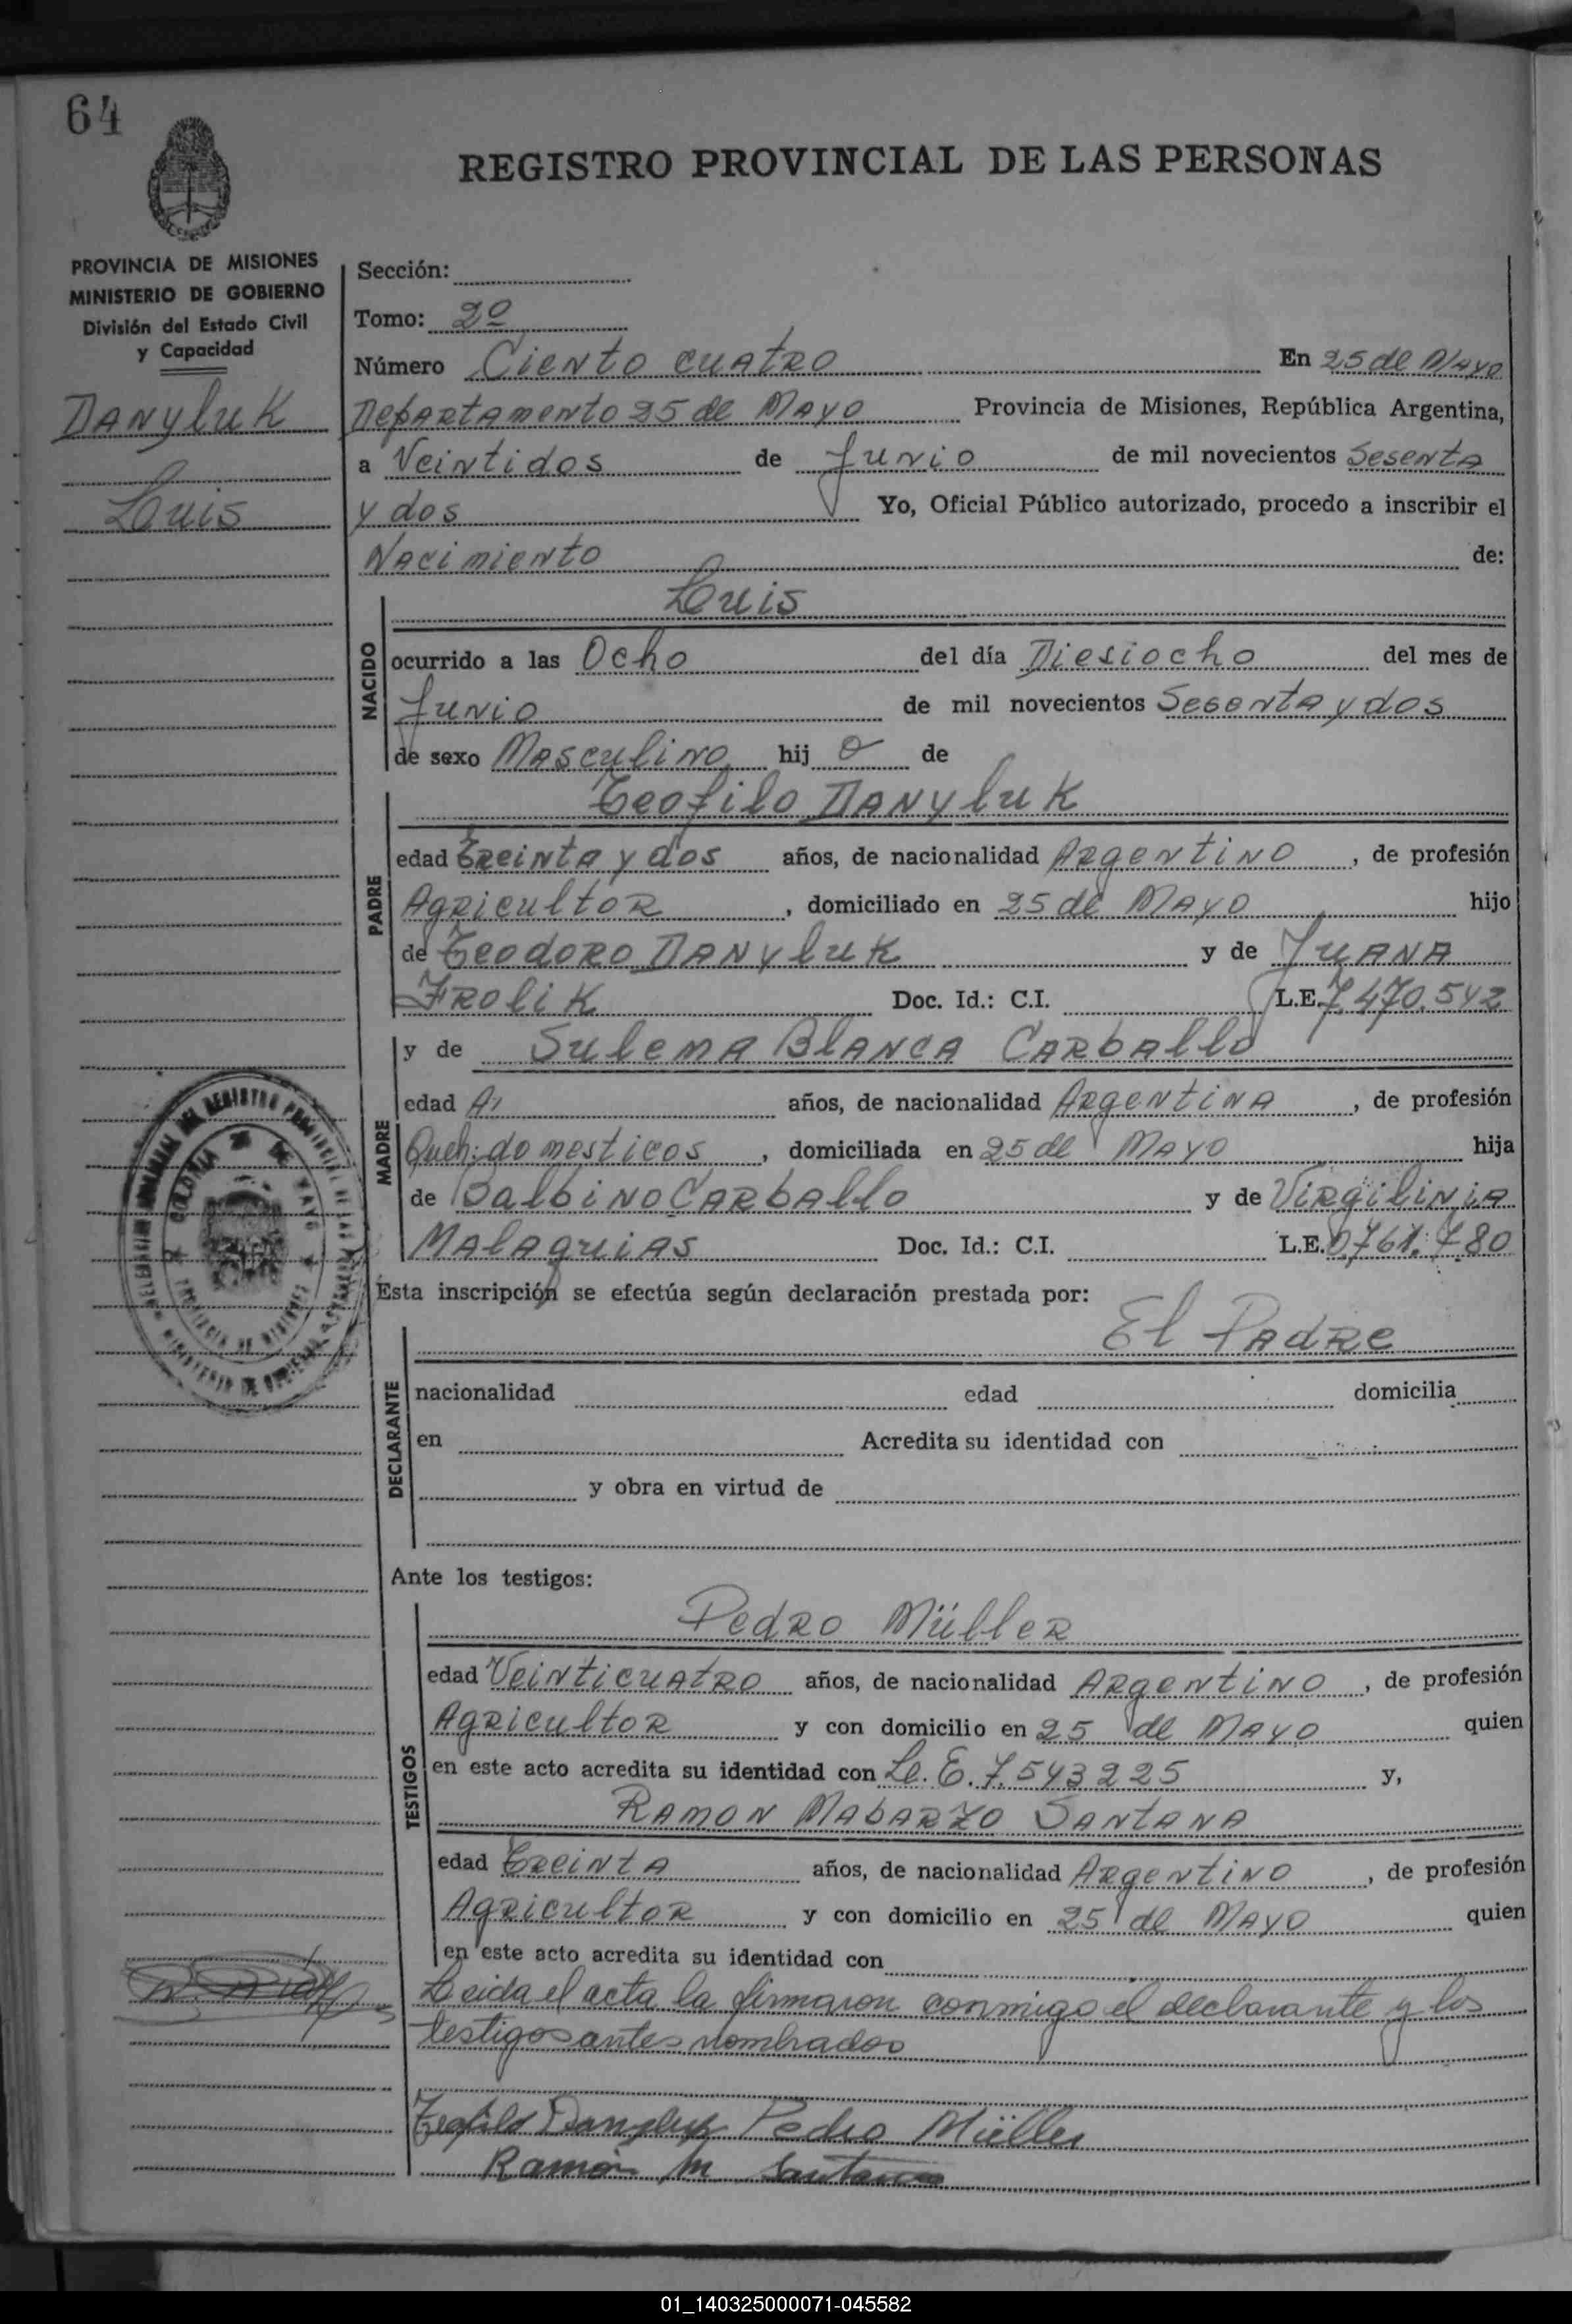 64
REGISTRO PROVINCIAL DE LAS PERSONAS
PROVINCIA DE MISIONES
MINISTERIO DE GOBIERNO
División del Estado Civil
y Capacidad
DANyluK
Luis
Sección:
Tomo: 2º
Número Ciento cuatro En 25 de Mayo
Departamento 25 de Mayo Provincia de Misiones, República Argentina,
a Veintidos de Junio de mil novecientos Sesenta
y dos Yo, Oficial Público autorizado, procedo a inscribir el
Nacimiento de:
NACIDO
Luis
ocurrido a las Ocho del día Diesiocho del mes de
Junio de mil novecientos Sesenta y dos
de sexo Masculino hij o de
PADRE
Teofilo DANyluK
edad Treinta y dos años, de nacionalidad Argentino, de profesión
Agricultor, domiciliado en 25 de Mayo hijo
de Teodoro DANyluK y de Juana
Frolik Doc. Id.: C.I. L.E. 7.470.542
MADRE
y de Sulema Blanca Carballo
edad años, de nacionalidad Argentina, de profesión
Queh. domesticos, domiciliada en 25 de Mayo hija
de Balbino Carballo y de Virgilinia
Malaquias Doc. Id.: C.I. L.E.
Esta inscripción se efectúa según declaración prestada por:
El Padre
DECLARANTE
nacionalidad edad domicilia
en Acredita su identidad con
y obra en virtud de
Ante los testigos:
TESTIGOS
Pedro Müller
edad Veinticuatro años, de nacionalidad Argentino, de profesión
Agricultor y con domicilio en 25 de Mayo quien
en este acto acredita su identidad con L. E. 7.543225 y,
Ramon Santana
edad Treinta años, de nacionalidad Argentino, de profesión
Agricultor y con domicilio en 25 de Mayo quien
en este acto acredita su identidad con
Leida el acta la firmaron conmigo el declarante y los
testigos antes nombrados
Teofilo Danyluk Pedro Müller
Ramón M Santana
01_140325000071-045582